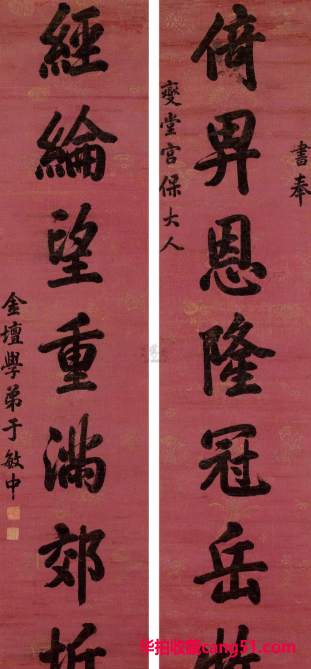 書奉
倚畀恩隆冠岳牧
堂宮保大人
經綸望重滿郊圻
金壇學弟于敏中
华拍收藏cang51.com